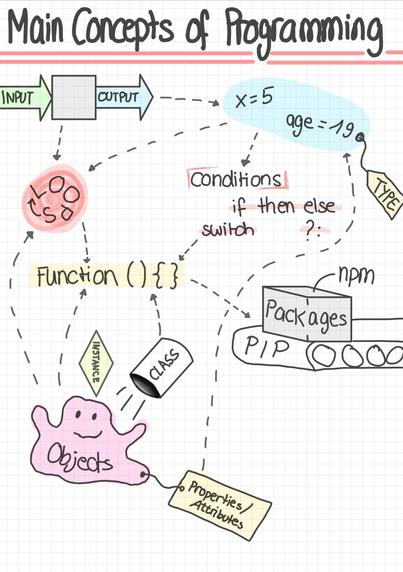 Main Concepts of Programming
INPUT
OUTPUT
x=5
age=19
TYPE
LOOPS
Conditions
if then else
switch ?:
Function () { }
npm
Packages
PIP
INSTANCE
CLASS
Objects
Properties/
Attributes